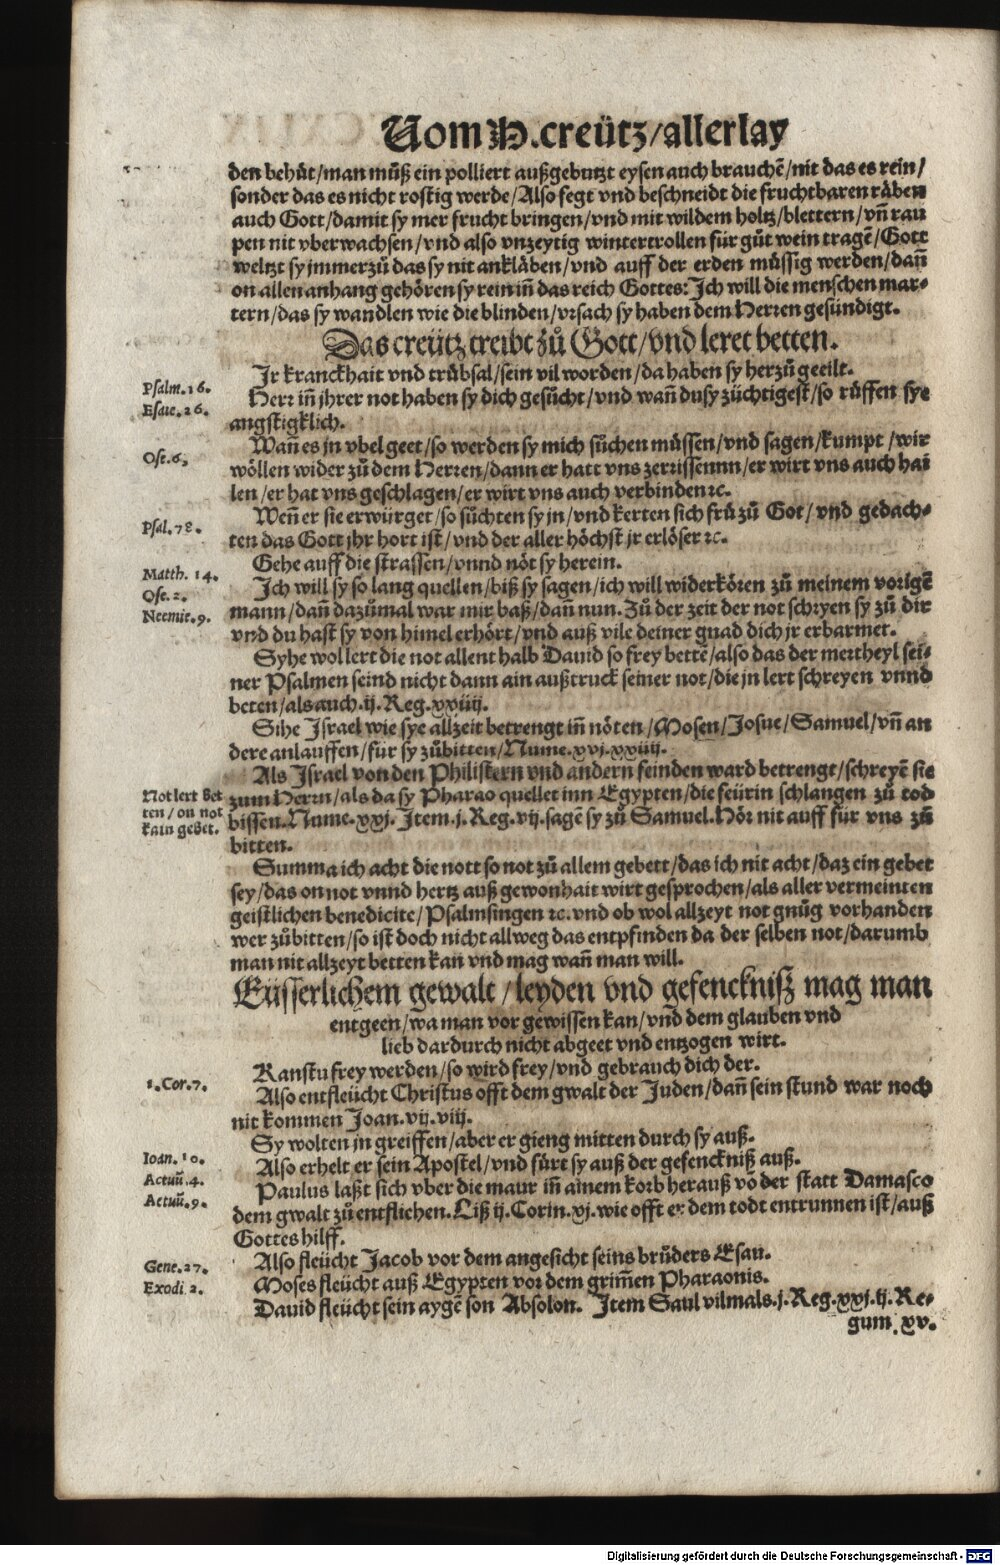 Vom H. creütz/allerlay
den behüt/man můß ein polliert außgebutzt eysen auch brauchē/nit das es rein/
sonder das es nicht rostig werde/Also fegt vnd beschneidt die fruchtbaren räben
auch Gott/damit sy mer frucht bringen/vnd mit wildem holtz/blettern/vn̄ rau
pen nit vberwachsen/vnd also vnzeytig wintertrollen für gůt wein tragē/Gott
weltzt sy jmmerzů das sy nit ankläben/vnd auff der erden müssig werden/dan̄
on allen anhang gehören sy rein in̄ das reich Gottes: Ich will die menschen mar-
tern/das sy wandlen wie die blinden/vrsach sy haben dem Herren gesündigt.
Das creütz treibt zů Gott/vnd leret betten.
Ir kranckhait vnd trübsal/sein vil worden/da haben sy herzů geeilt.
Psalm. 16.
Herr in̄ jhrer not haben sy dich gesůcht/vnd wan̄ du sy züchtigest/so rüffen sye
Esaie. 26.
angstigklich.
Wan̄ es jn vbel geet/so werden sy mich sůchen müssen/vnd sagen/kumpt/wir
Ose. 6,
wöllen wider zů dem Herren/dann er hatt vns zerrissennn/er wirt vns auch hai
len/er hat vns geschlagen/er wirt vns auch verbinden ꝛc.
Wen̄ er sie erwürget/so sůchten sy jn/vnd kerten sich frů zů Got/vnd gedach-
Psal. 78.
ten das Gott jhr hort ist/vnd der aller höchst jr erlöser ꝛc.
Gehe auff die strassen/vnnd nöt sy herein.
Matth. 14.
Ich will sy so lang quellen/biß sy sagen/ich will widerkören zů meinem vorigē
Ose. 2.
mann/dan̄ dazůmal war mir baß/dan̄ nun. Zů der zeit der not schryen sy zů dir
Neemie. 9.
vnd du hast sy von himel erhört/vnd auß vile deiner gnad dich jr erbarmet.
Syhe wol lert die not allent halb Dauid so frey bettē/also das der mertheyl sei-
ner Psalmen seind nicht dann ain außtruck seiner not/die jn lert schreyen vnnd
beten/als auch .ij. Reg. xxiiij.
Sihe Israel wie sye allzeit betrengt in̄ nöten/Mosen/Josue/Samuel/vn̄ an
dere anlauffen/für sy zůbitten/Nume. xvj. xxiiij.
Als Israel von den Philistern vnd andern feinden ward betrengt/schreyē sie
Not lert Bet
ten/on not
kain gebet.
zum Herrn/als da sy Pharao quellet inn Egypten/die feürin schlangen zů tod
bissen. Nume. xxj. Item .j. Reg. vij. sagē sy zů Samuel. Hör nit auff für vns zů
bitten.
Summa ich acht die nott so not zů allem gebett/das ich nit acht/daz ein gebet
sey/das on not vnnd hertz auß gewonhait wirt gesprochen/als aller vermeinten
geistlichen benedicite/Psalmsingen ꝛc. vnd ob wol allzeyt not gnůg vorhanden
wer zůbitten/so ist doch nicht allweg das entpfinden da der selben not/darumb
man nit allzeyt betten kan vnd mag wan̄ man will.
Eüsserlichem gewalt/leyden vnd gefencknisz mag man
entgeen/wa man vor gewissen kan/vnd dem glauben vnd
lieb dardurch nicht abgeet vnd entzogen wirt.
Kanstu frey werden/so wird frey/vnd gebrauch dich der.
1. Cor. 7.
Also entfleücht Christus offt dem gwalt der Juden/dan̄ sein stund war noch
nit kommen Joan. vij. viij.
Sy wolten jn greiffen/aber er gieng mitten durch sy auß.
Ioan. 10.
Also erhelt er sein Apostel/vnd fürt sy auß der gefenckniß auß.
Actuū. 4.
Paulus laßt sich vber die maur in̄ ainem korb herauß vō der statt Damasco
Actuū. 9.
dem gwalt zů entfliehen. Liß ij. Corin. xj. wie offt er dem todt entrunnen ist/auß
Gottes hilff.
Also fleücht Jacob vor dem angesicht seins brůders Esau.
Gene. 27.
Moses fleücht auß Egypten vor dem grim̄en Pharaonis.
Exodi 2.
Dauid fleücht sein aygē son Absolon. Item Saul vilmals .j. Reg. xxj. ij. Re-
gum. xv.
Digitalisierung gefördert durch die Deutsche Forschungsgemeinschaft - DFG